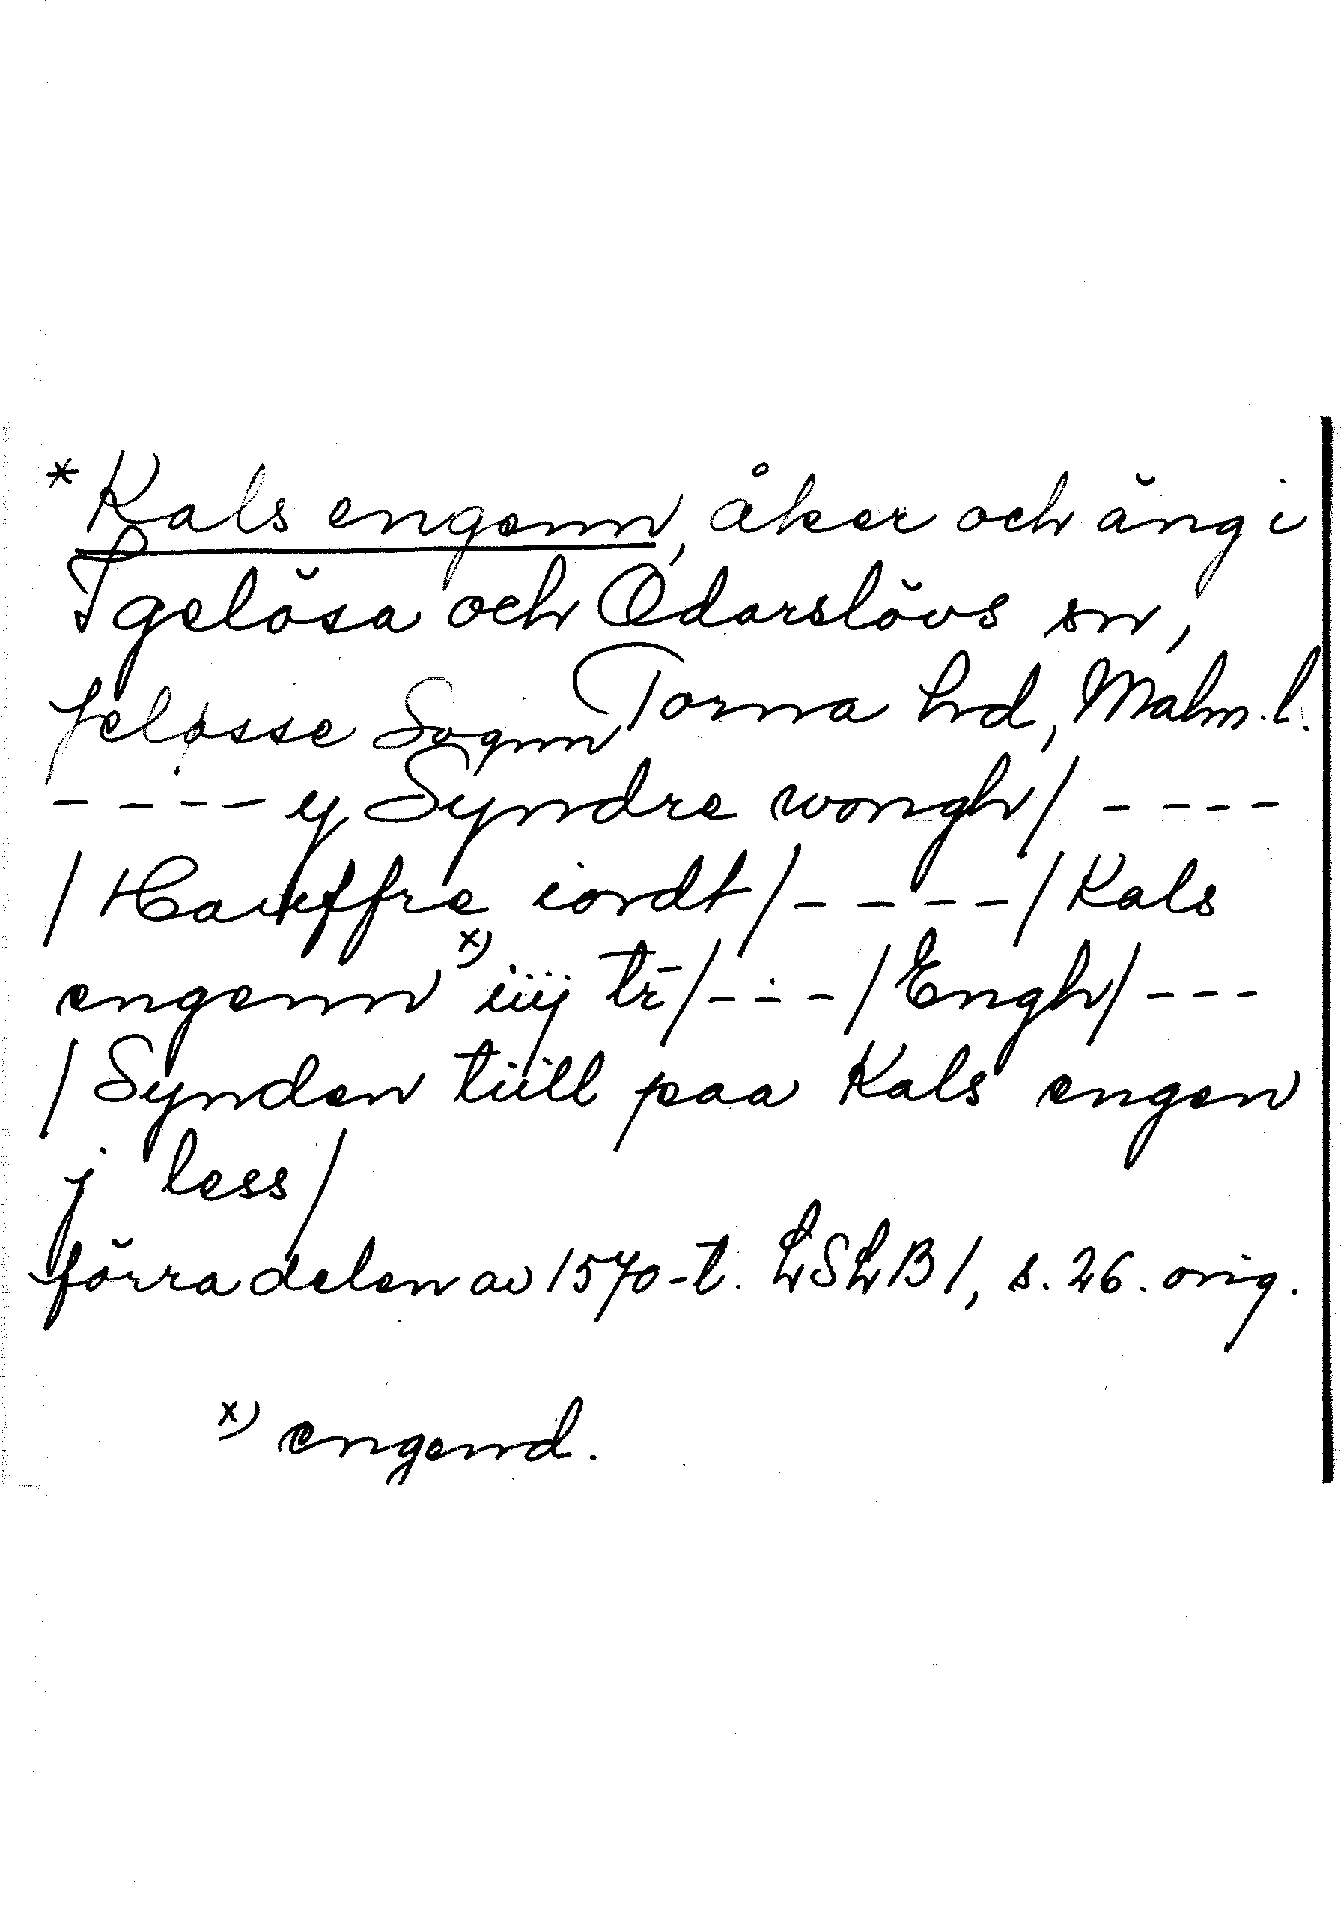 * Kals engenn, åker och äng i
Igelösa och Odarslövs sn,
Jeløsse Sognn Torna hd, Malm. l.
---- y Syndre wongh/ ----
/ Hauffre iordt/----/Kals
engenn x) iiij tr̄/---/Engh/---
/Synden tiill paa Kals engen
j less/
förra delen av 1570-t. LSLB 1, s. 26. orig.
x) engend.